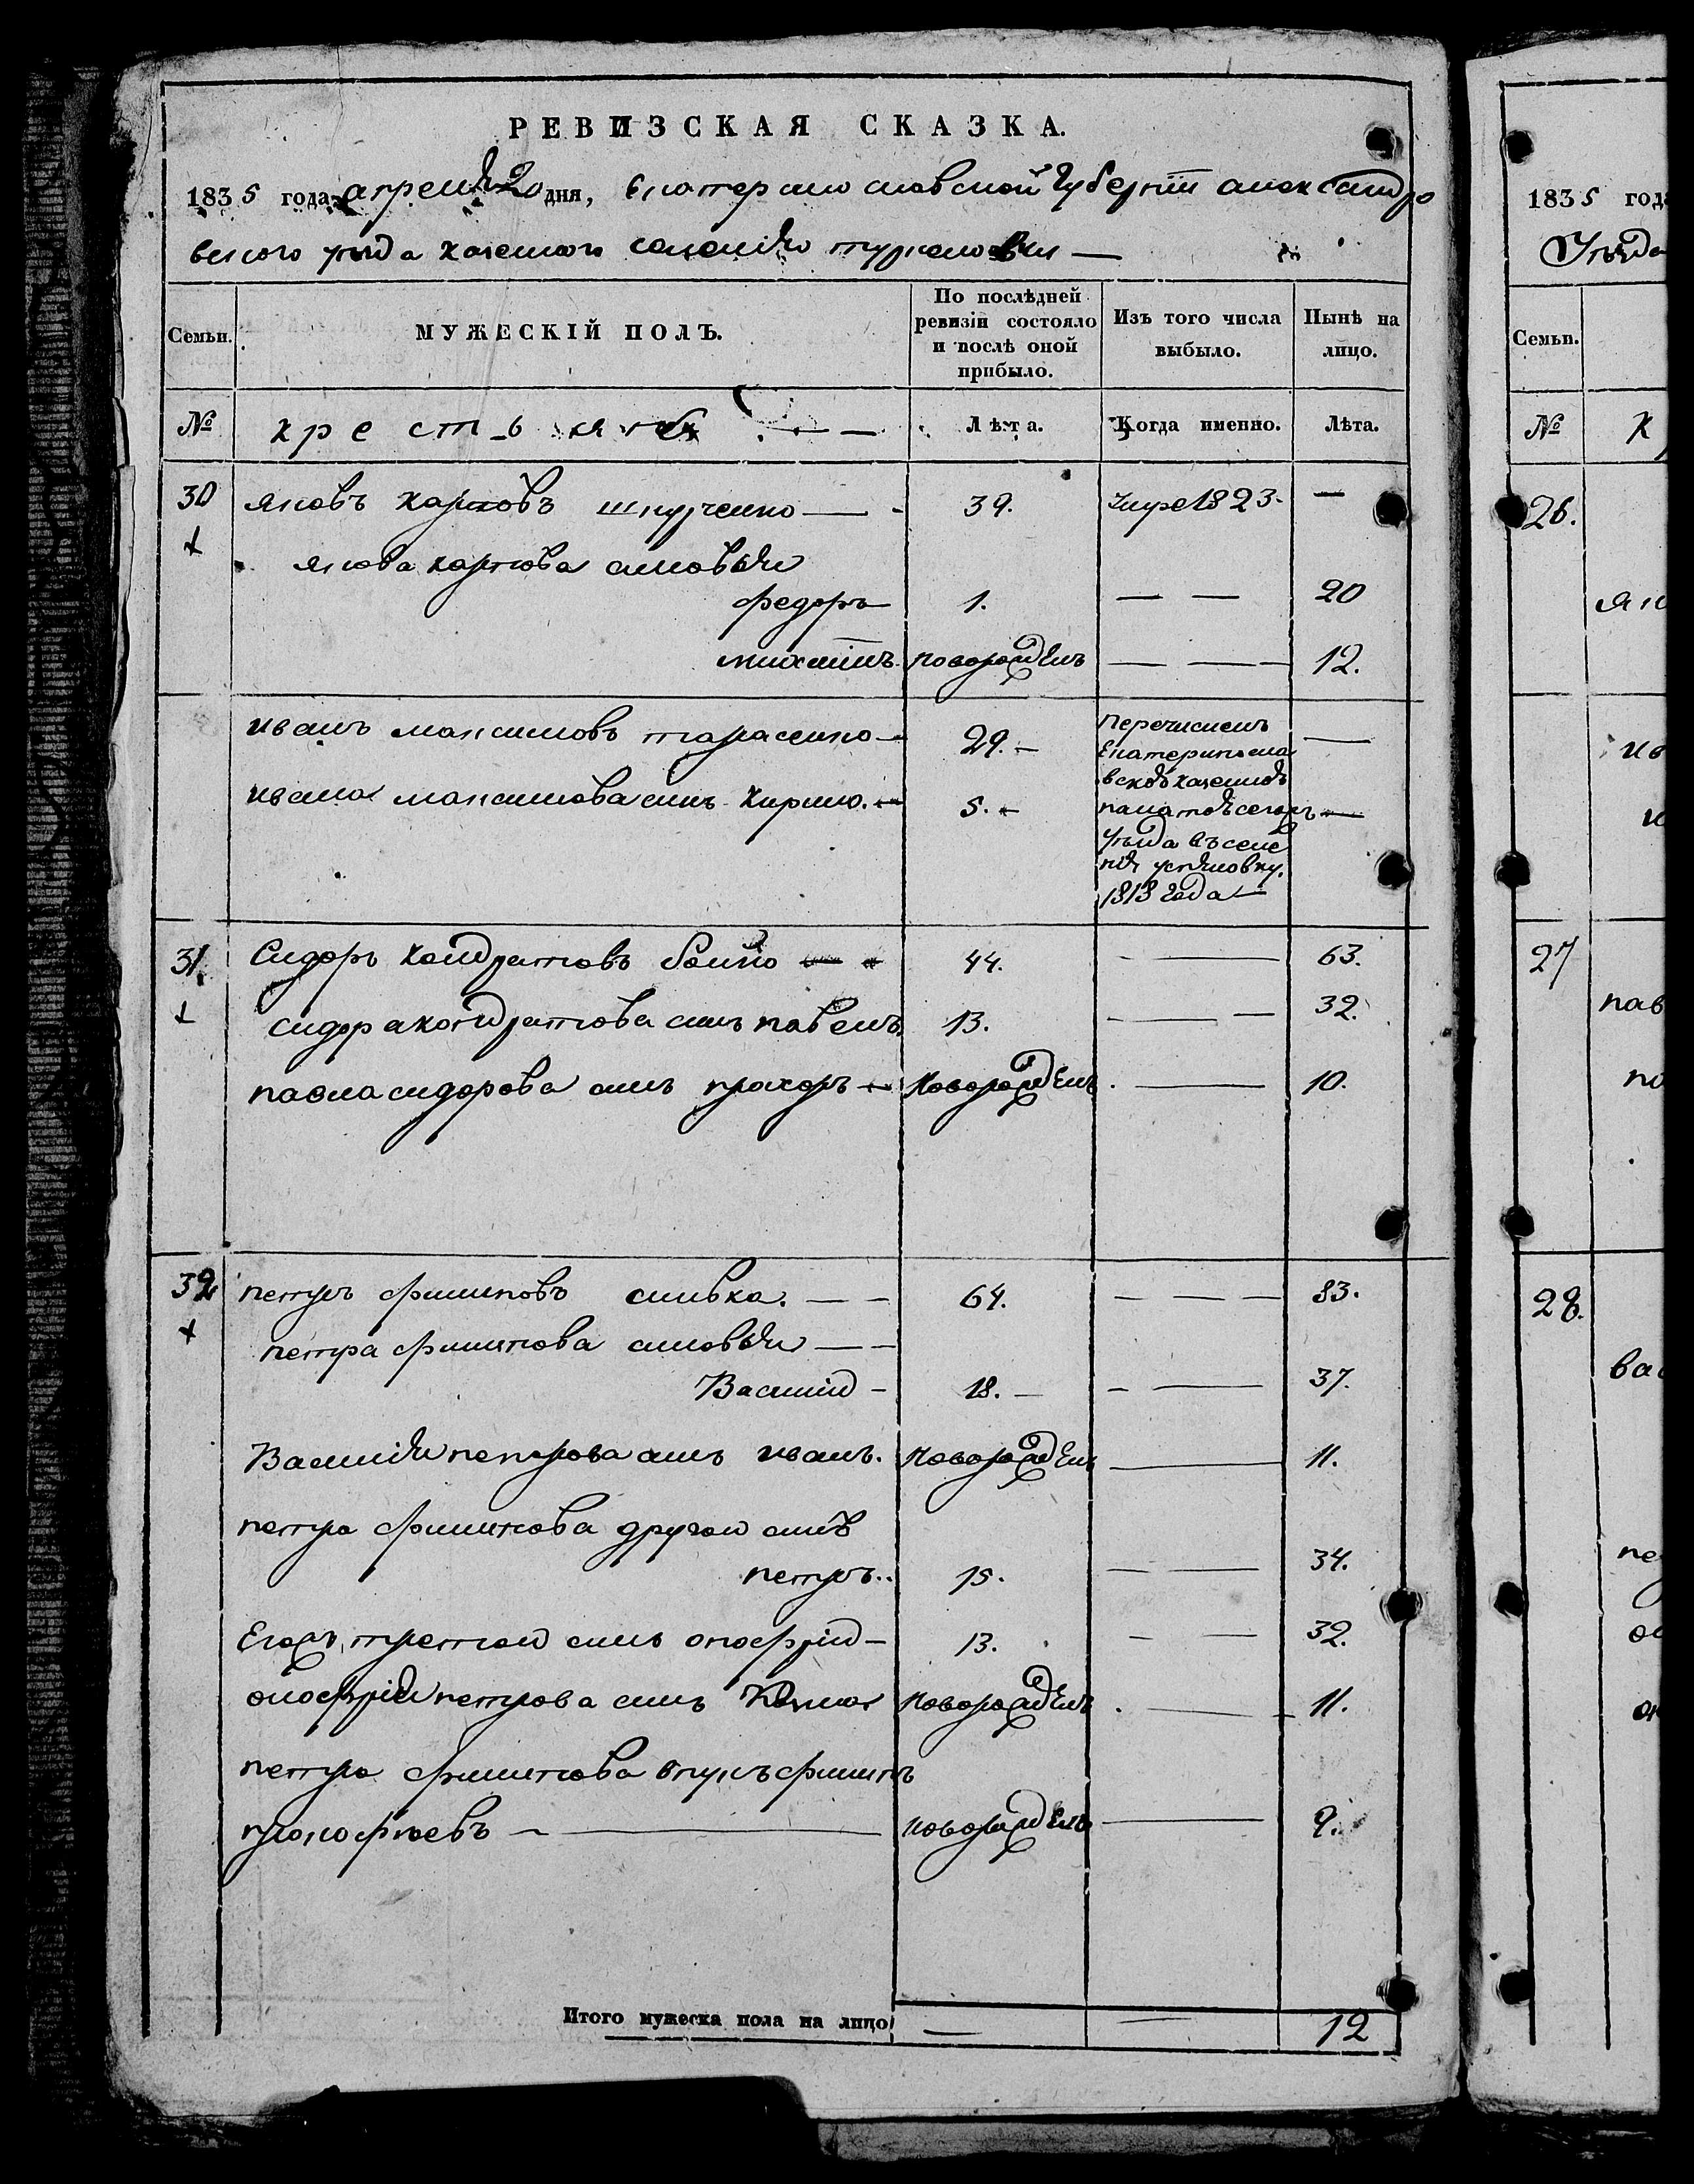 РЕВИЗСКАЯ СКАЗКА.
1835 года апреля 20 дня, Екатеринославской губернїи александро
вскаго уѣзда казеннаго селенія туркеновки —
Семьи. МУЖЕСКІЙ ПОЛЪ. По послѣдней ревизіи состояло и послѣ оной прибыло. Изъ того числа выбыло. Нынѣ на лицо.
№ крестьянъ Лѣта. Когда именно. Лѣта.
30 яковъ карповъ шкурченко — 39. умре 1823. —
якова карпова сыновья
федоръ 1. — — 20
михаилъ новорожденъ — — 12.
иванъ максимовъ тарасенко — 29. — перечисленъ —
Екатериносла
ивана максимова сынъ кирило. — 5. — вской казенной
палатой сегожъ —
уѣзда въ селе
нія успеновку.
1813 года —
31. Сидоръ кондратовъ бойко — 44. — 63.
сидора кондратова сынъ павелъ 13. — — 32.
павла сидорова сынъ прохоръ — новорожденъ — 10.
32 петръ филиповъ сливка. — — 64. — — — 83.
петра филипова сыновья — —
Василій — 18. — — — 37.
Василія петрова сынъ иванъ. новорожденъ — 11.
петра филипова другой сынъ
петръ.. 15. — — 34.
Егожъ третой сынъ онофрій — 13. — — 32.
онофрія петрова сынъ новорожденъ — 11.
петра филипова внукъ филипъ
прокофьевъ — новорожденъ — 9.
Итого мужеска пола на лицо — — 12
1835 года
Уѣзда
Семьи.
№ К
26.
27
28.